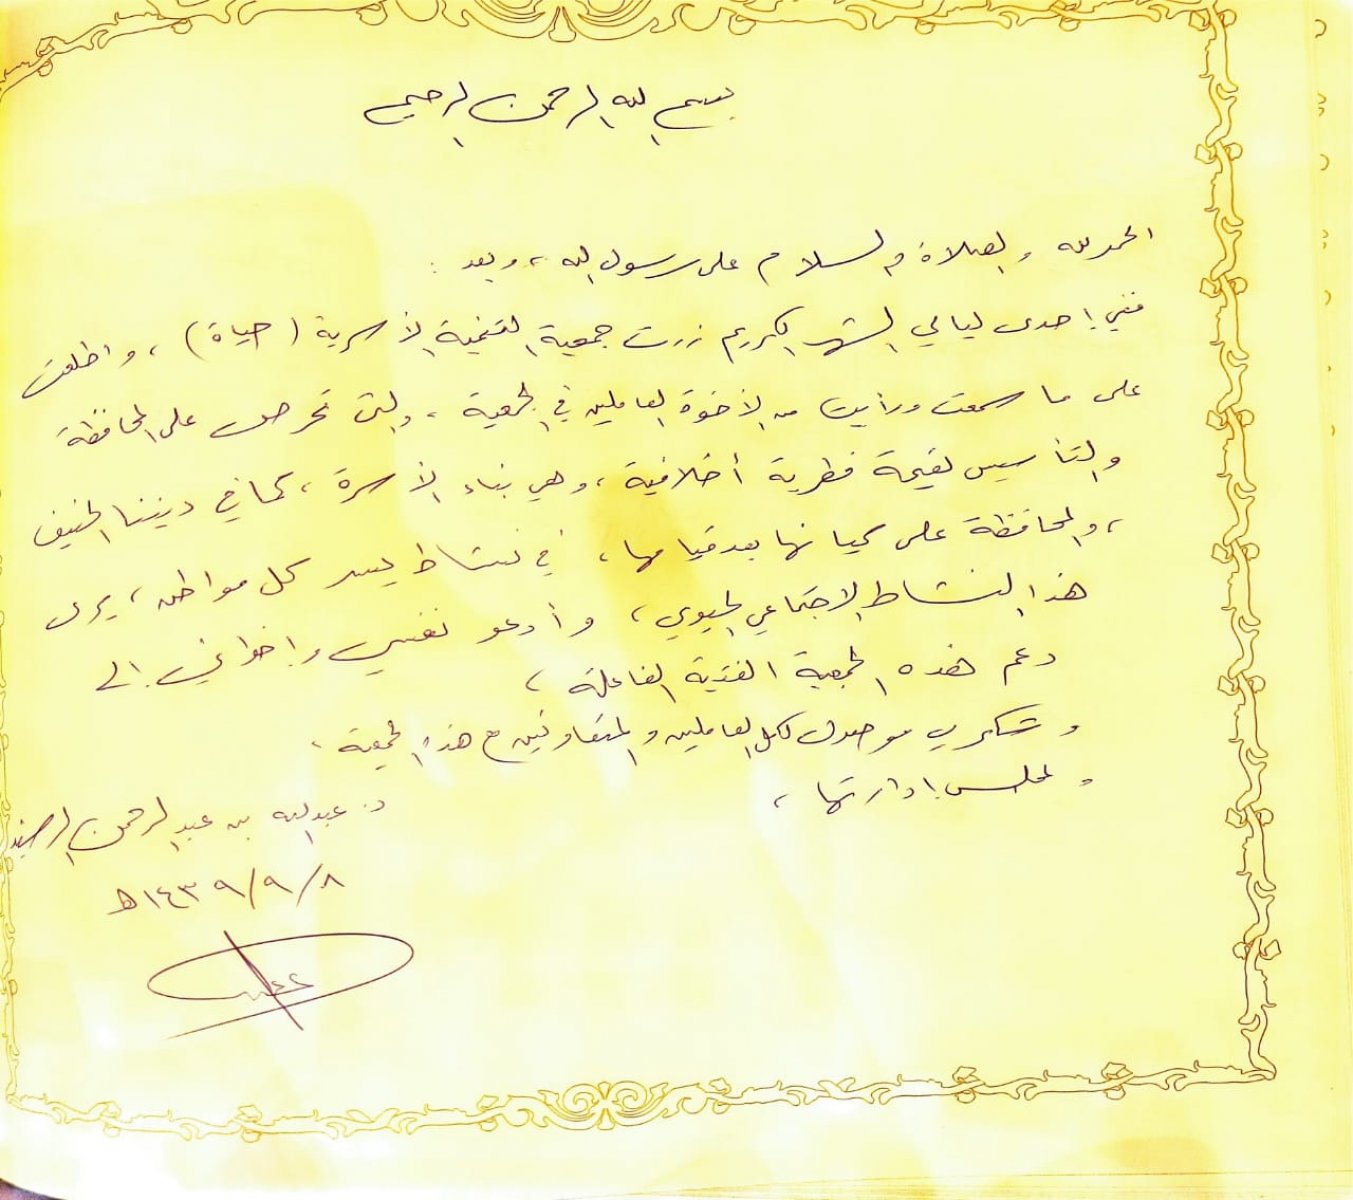 بسم الله الرحمن الرحيم
الحمد لله والصلاة والسلام على رسول الله ، وبعد :
ففي إحدى ليالي الشهر الكريم زرت جمعية التنمية الأسرية (حياة) ، واطلعت
على ما سمعت ورأيت من الأخوة العاملين في الجمعية ، والتي تحرص على المحافظة
والتأسيس لقيمة فطرية أخلاقية ، وهي بناء الأسرة ، كما في ديننا الحنيف
، والمحافظة على كيانها بعد قيامها ، في نشاط يسر كل مواطن ، يرى
هذا النشاط الاجتماعي الحيوي ، وأدعو نفسي وإخواني إلى
دعم هذه الجمعية الفتية الفاعلة ،
وشكري موصول لكل العاملين والمتعاونين مع هذه الجمعية ،
ومجلس إدارتها ،
د. عبدالله بن عبدالرحمن
٨/٩/١٤٣٩هـ